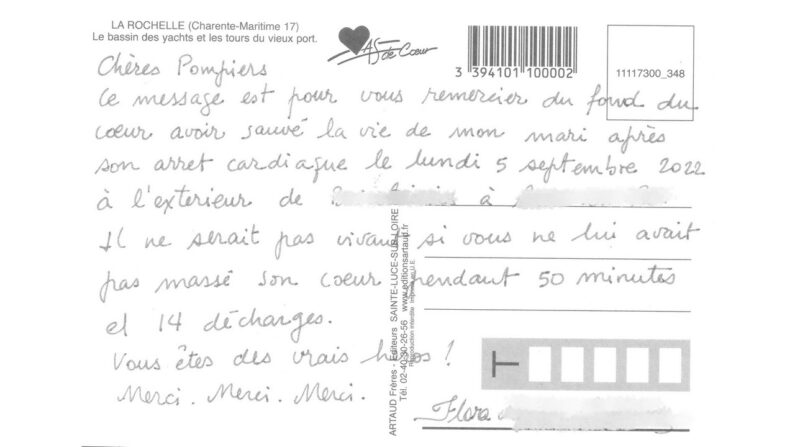 LA ROCHELLE (Charente-Maritime 17)
Le bassin des yachts et les tours du vieux port.
AS de Cœur
3 394101 100002
11117300_348
Chères Pompiers
Ce message est pour vous remercier du fond du
cœur avoir sauvé la vie de mon mari après
son arret cardiaque le lundi 5 septembre 2022
à l'exterieur de à
Il ne serait pas vivant si vous ne lui avait
pas massé son coeur pendant 50 minutes
et 14 décharges.
Vous êtes des vrais héros !
Merci. Merci. Merci.
Flora
ARTAUD Frères - Editeurs SAINTE-LUCE-SUR-LOIRE
Tél. 02-40-30-26-56 www.editionsartaud.fr
Reproduction interdite Imprimé en U.E.